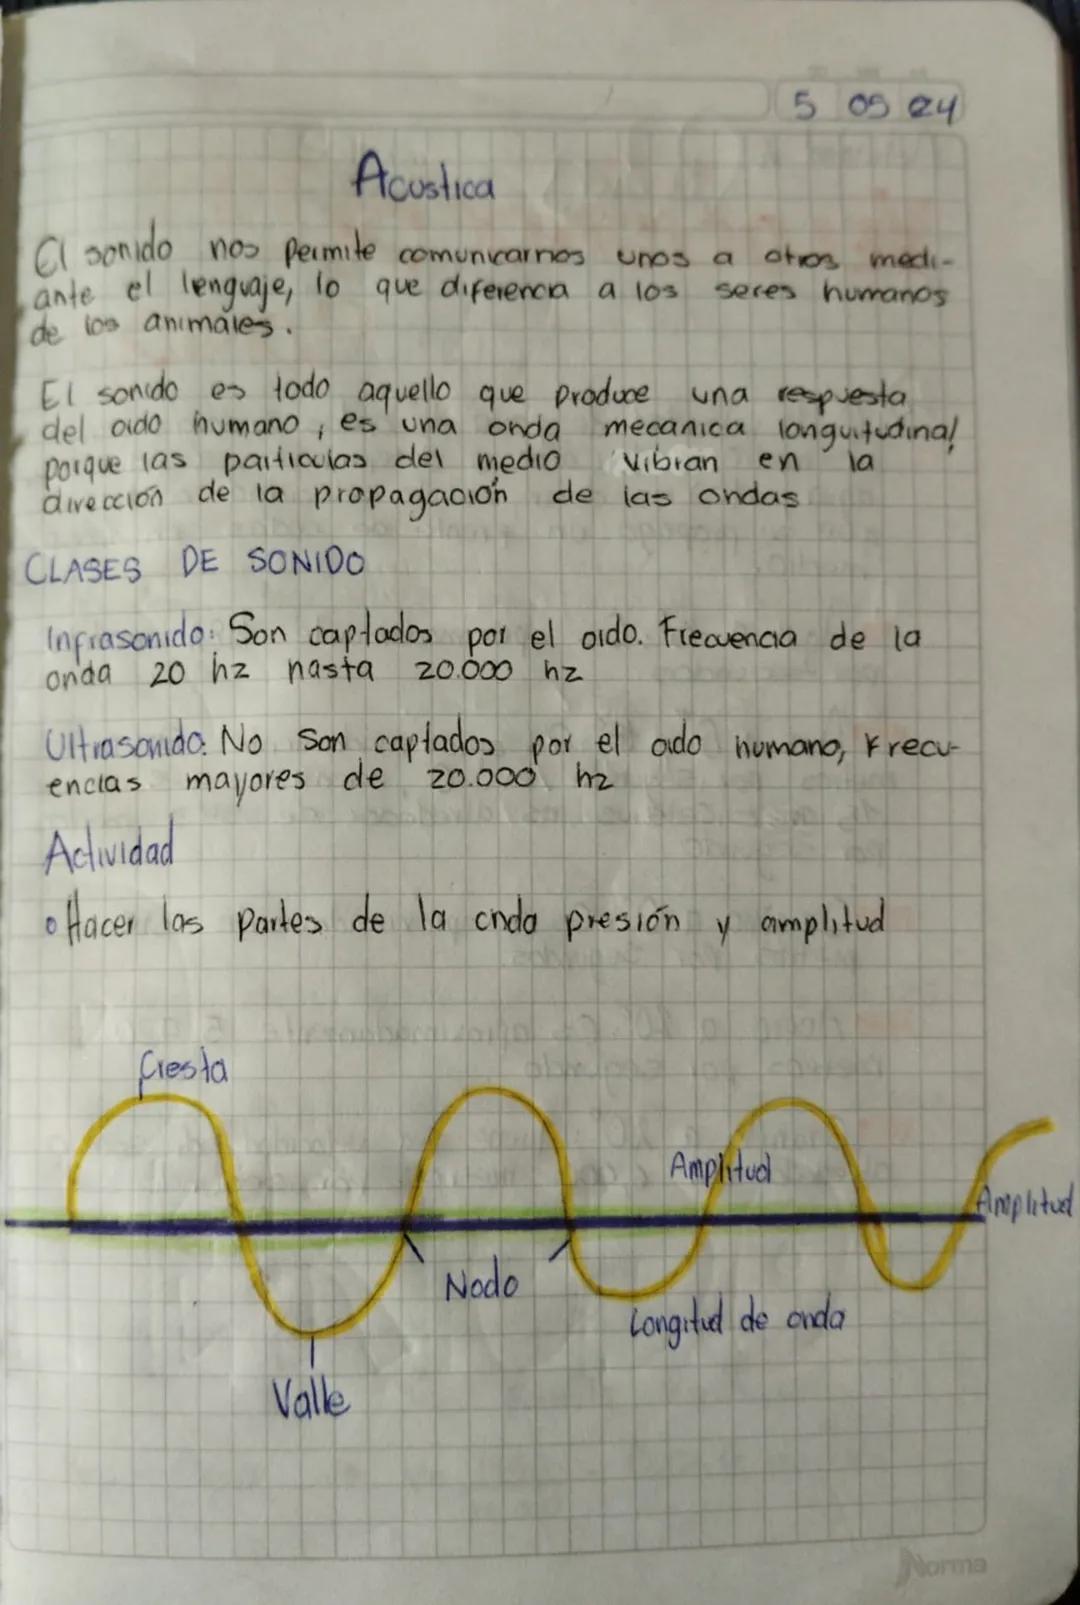 5 05 24
Acustica
El sonido nos permite comunicarnos unos a otros medi-
ante el lenguaje, lo que diferencia a los seres humanos
de los animales.
El sonido es todo aquello que produce una respuesta
del oido humano, es una onda mecanica longuitudinal
porque las particulas del medio vibran en la
dirección de la propagación de las ondas
CLASES DE SONIDO
Infrasonido: Son captados por el oido. Frecuencia de la
onda 20 hz hasta 20.000 hz
Ultrasonido: No son captados por el oido humano, Frecu-
encias mayores de 20.000 hz
Actividad
• Hacer las partes de la onda presión y amplitud
Cresta
Amplitud
Amplitud
Nodo
Longitud de onda
Valle
Norma